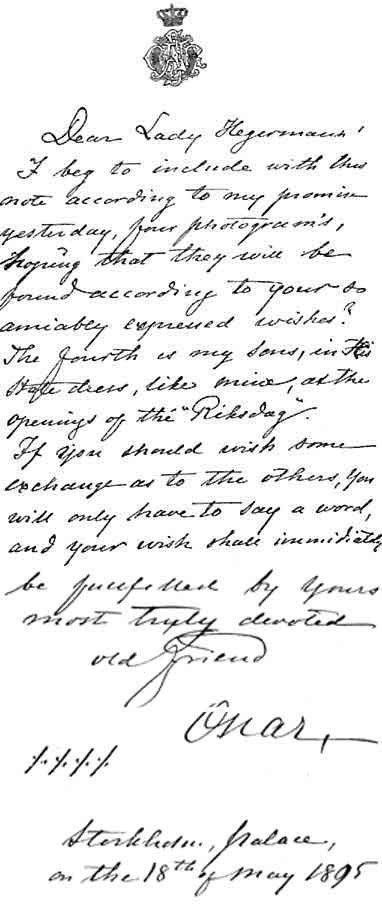 Dear Lady Hegermann!
I beg to include with this
note according to my promise
yesterday, four photogram's,
hoping that they will be
found according to your so
amiably expressed wishes?
The fourth is my sons, in His
State dress, like mine, at the
openings of the "Riksdag".
If you should wish some
exchange as to the others, you
will only have to say a word,
and your wish shall immediately
be fulfilled by yours
most truly devoted
old friend
Oscar,
Stockholm, palace,
on the 18th of May 1895